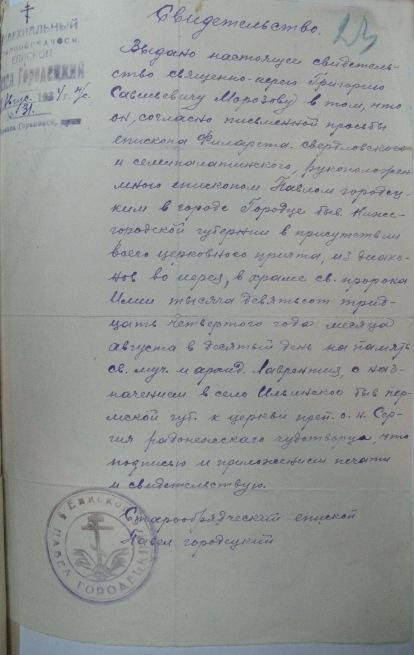 ЕПАРХИАЛЬНЫЙ
ЕПИСКОП
Павел Городецкий
1934 г.
№ 131
23
Свидетельство.
Выдано настоящее свидетель-
ство священно-иерею Григорию
Савиевичу Морозову в том, что
он, согласно письменной просьбы
епископа Филарета свердловского
и семипалатинского, рукоположен
мною епископом Павлом городец-
ким в городе Городце быв. Нижего-
городской губернии в присутствии
всего церковного причта, из диако-
нов во иерея, в храме св. пророка
Илии тысяча девятьсот трид-
цать четвертого года месяца
августа в десятый день на память
св. муч. и архид. Лаврентия, с наз-
начением в село Ильинское быв пер-
мской губ. к церкви преп. о. н. Сер-
гия радонежскаго чудотворца, что
подписью и приложением печати
и свидетельствую.
Старообрядческий епископ
Павел городецкий
ЕПИСКОП
ПАВЕЛ ГОРОДЕЦКИЙ